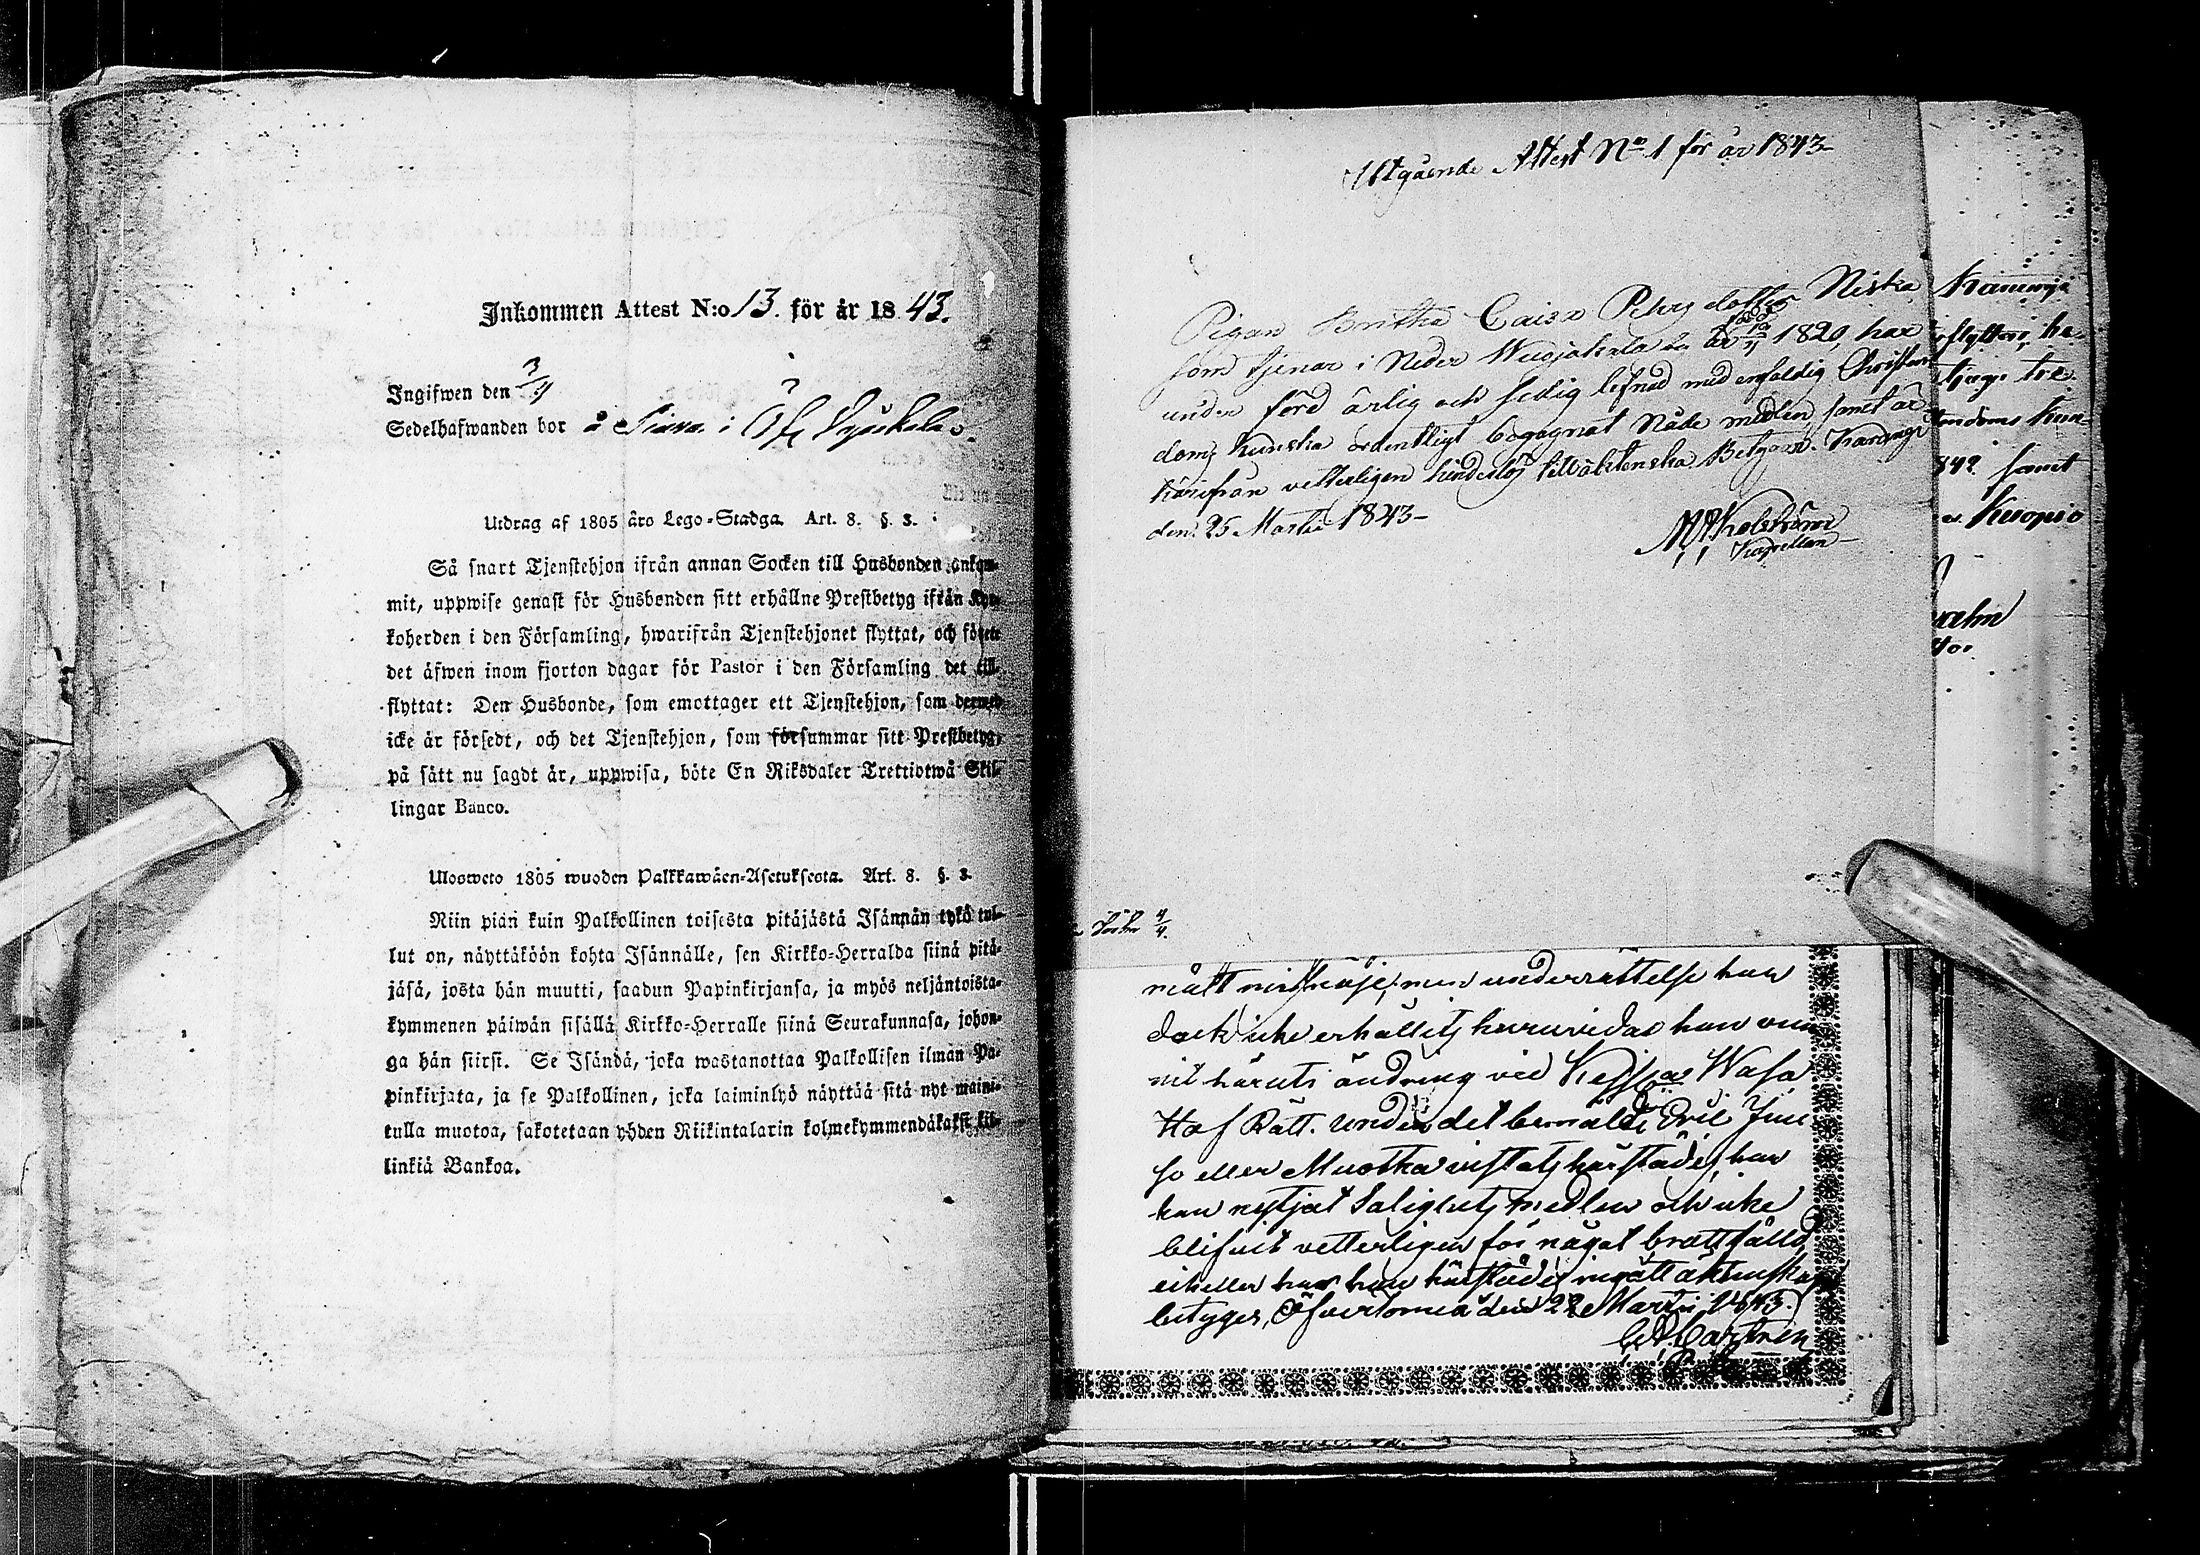 Inkommen Attest N:o 13. för år 1843.
Ingifwen den 3/4
Sedelhafwanden bor å Siuva i Öfv.
Utdrag af 1805 års Lego-Stadga. Art. 8. §. 3.
Så snart Tjenstehjon ifrån annan Socken till Husbonden ankom-
mit, uppwise genast för Husbonden sitt erhållne Prestbetyg ifrån Kyr-
koherden i den Församling, hwarifrån Tjenstehjonet flyttat, och förete
det äfwen inom fjorton dagar för Pastor i den Församling det till-
flyttat: Den Husbonde, som emottager ett Tjenstehjon, som dermed
icke är försedt, och det Tjenstehjon, som försummar sitt Prestbetyg,
på sätt nu sagdt är, uppwisa, böte En Riksdaler Trettiotwå Skil-
lingar Banco.
Ulosweto 1805 wuoden Palkkawäen-Asetuksesta. Art. 8. §. 3.
Niin pian kuin Palkollinen toisesta pitäjästä Isännän tykö tul-
lut on, näyttäköön kohta Isännälle, sen Kirkko-Herralda siinä pitä-
jäsä, josta hän muutti, saadun Papinkirjansa, ja myös neljäntoista-
kymmenen päiwän sisällä Kirkko-Herralle siinä Seurakunnasa, johon-
ga hän siirsi. Se Isändä, joka wastanottaa Palkollisen ilman Pa-
pinkirjata, ja se Palkollinen, joka laiminlyö näyttää sitä nyt maini-
tulla muotoa, sakotetaan yhden Riikintalarin kolmekymmendäkaksi kil-
linkiä Bankoa.
Utgående Attest No 1 för år 1843
Pigan Britha Caisa Pehrs dotter Niska
som tjenar i Neder Wojakala är född 12/11 1820, har
under förd ärlig och sedlig lefnad med enfaldig Christen
doms kunska ordentligt begagnat Nåde medlen samt är
härifrån vetterligen hinderlös till äktenska. Betygar. Karungi
den 25 Martii 1843
Kapellan
4/4.
mält missnöje, men underrättelse har
dock icke erhållits huruvida han vun
nit häruti ändring vid Kejserl. Wasa
Hof Rätt. Under det bemälde Eric Jun
so eller Muotka vistats härstädes har
han nystjat Salighets medlen och icke
blifvit vetterligen för något brott fälld
ej heller har han härstädes ingått äktenskap
betyger, Öfvertorneå den 22 Martii 1843.
Kuopio
samt